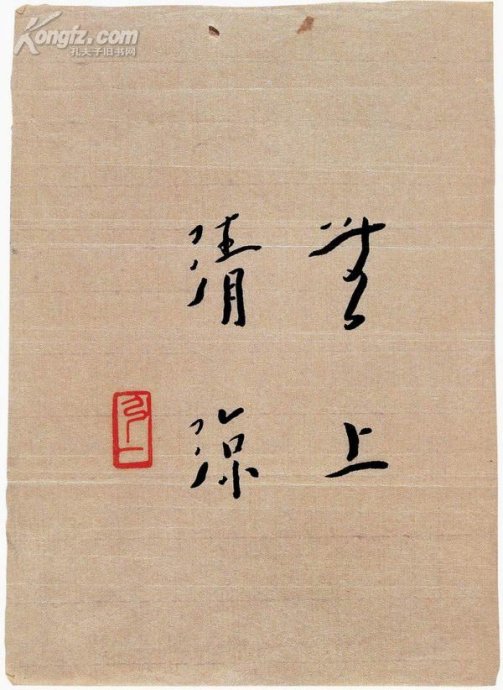 Kongfz.com
孔夫子旧书网
無上
清涼